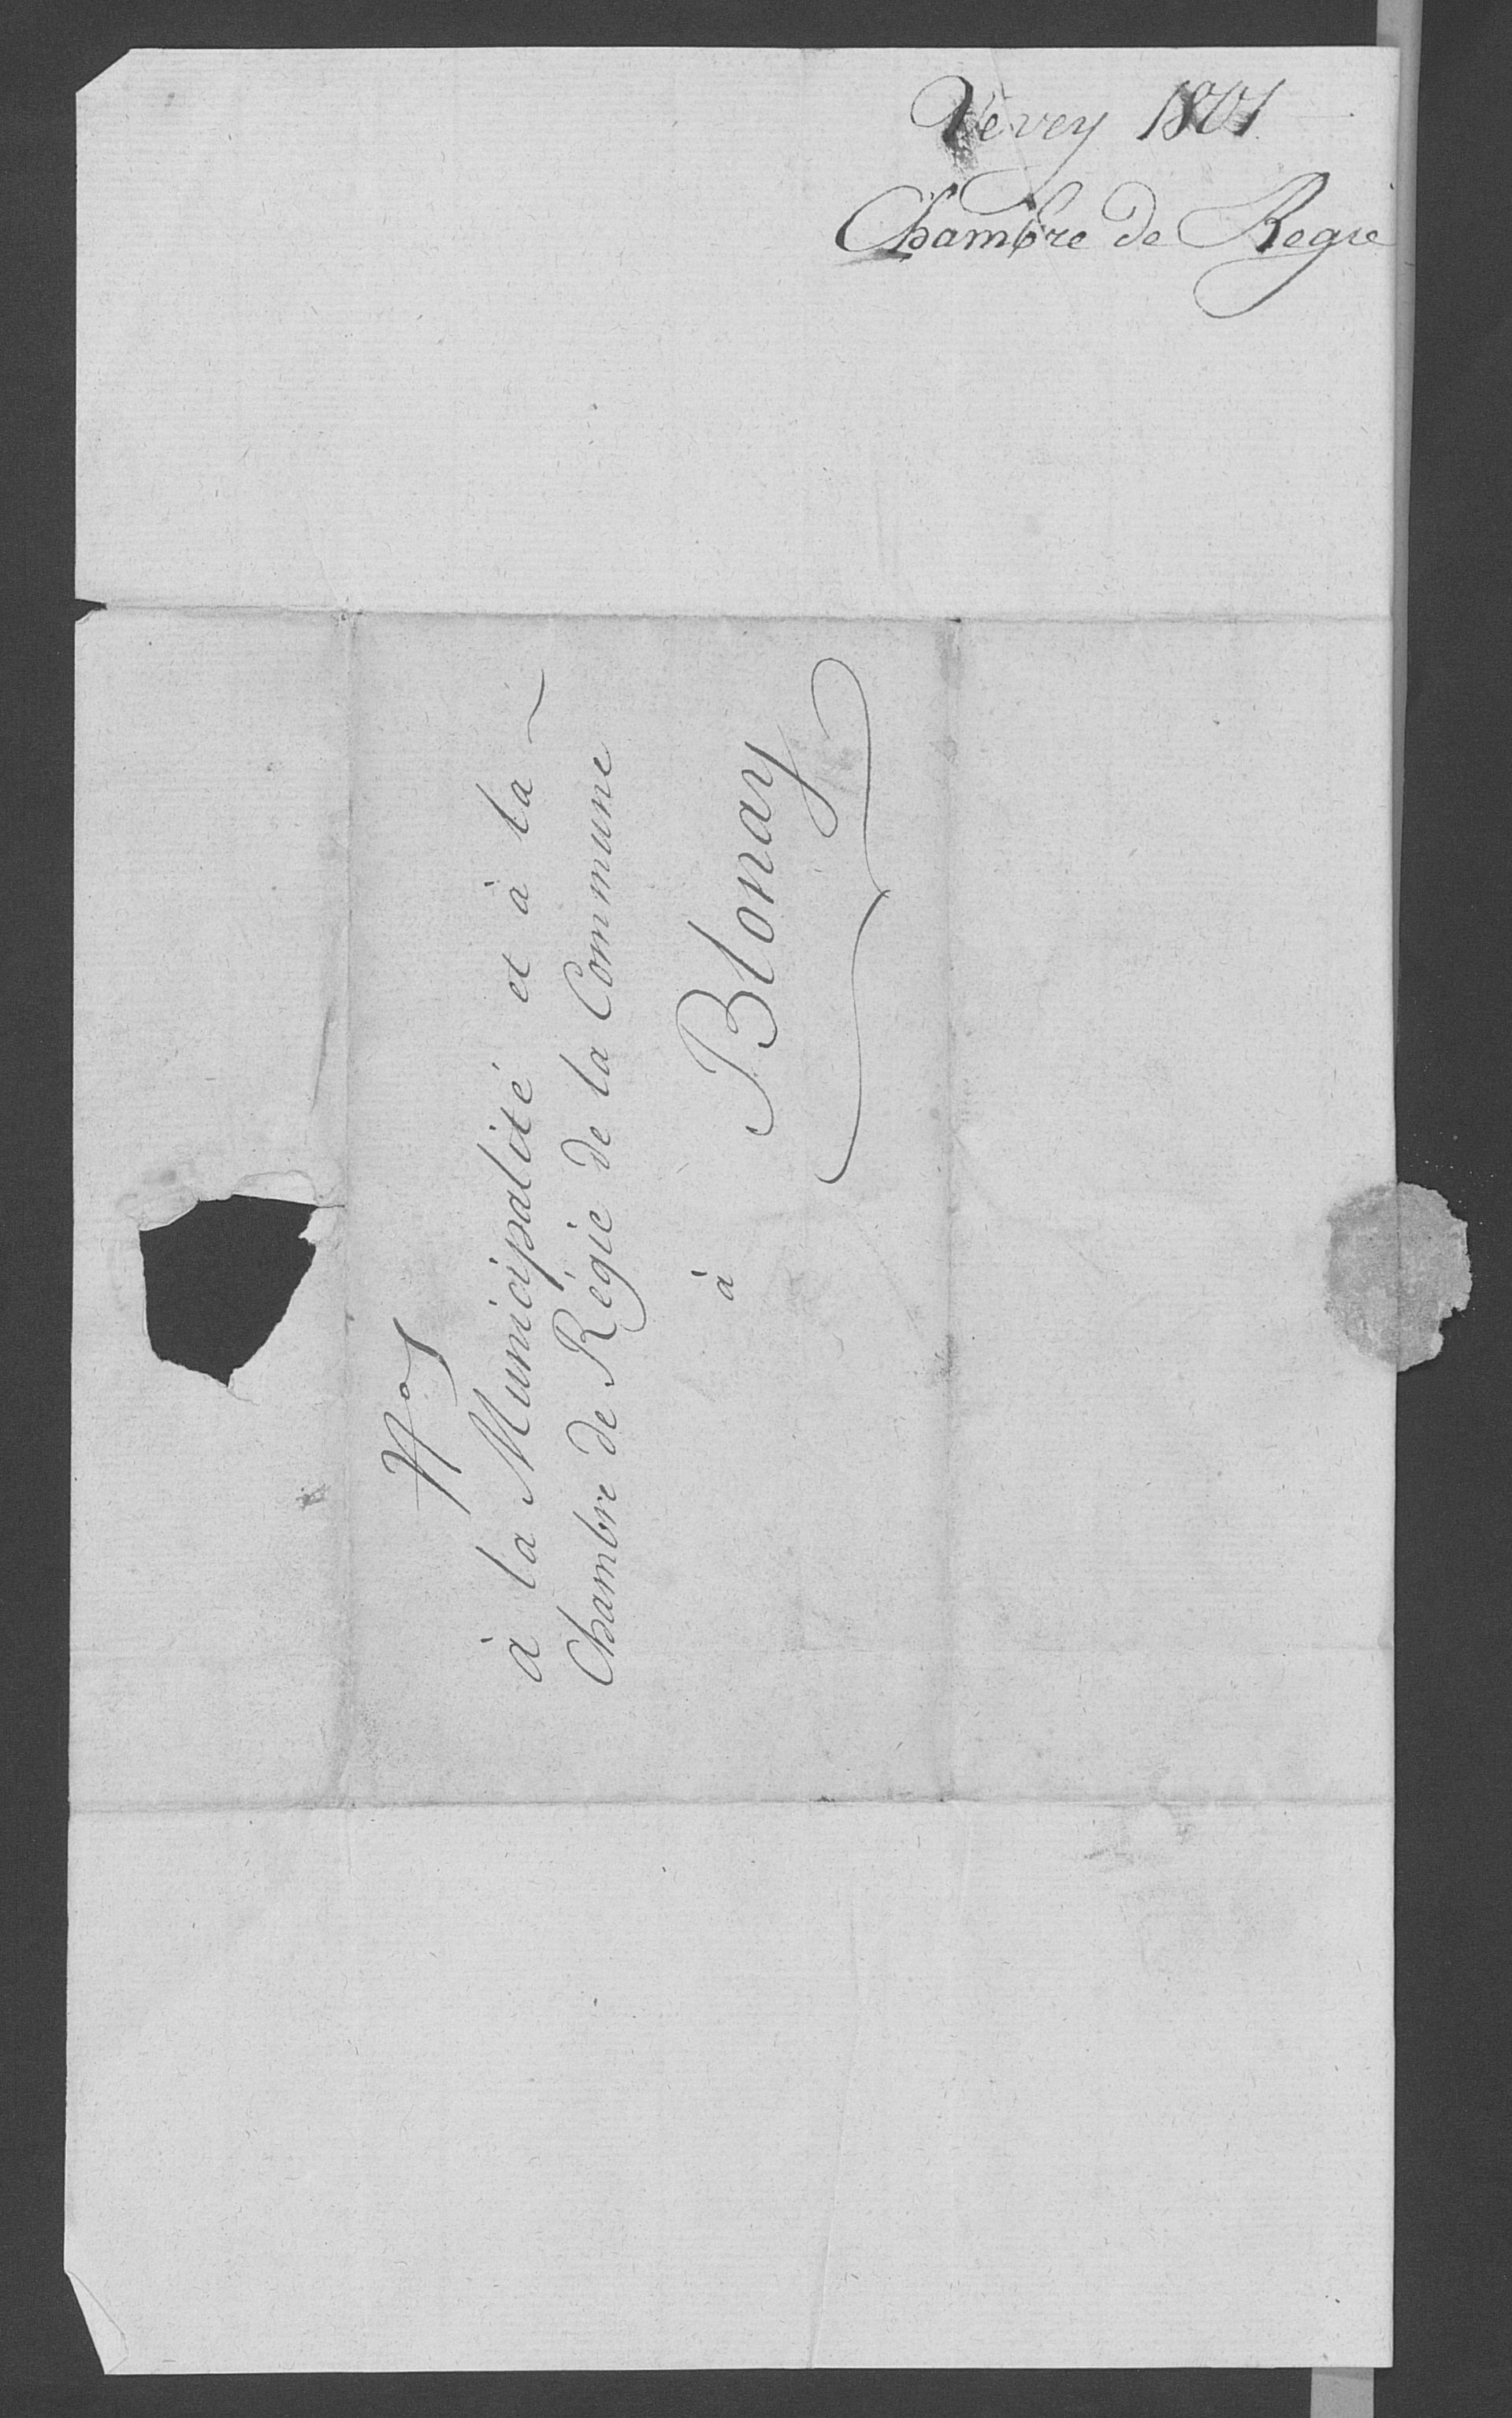 Vevey 1801
Chambre de Regie
à la Municipalité et à la
Chambre de Régie de la Commune
à Blonay